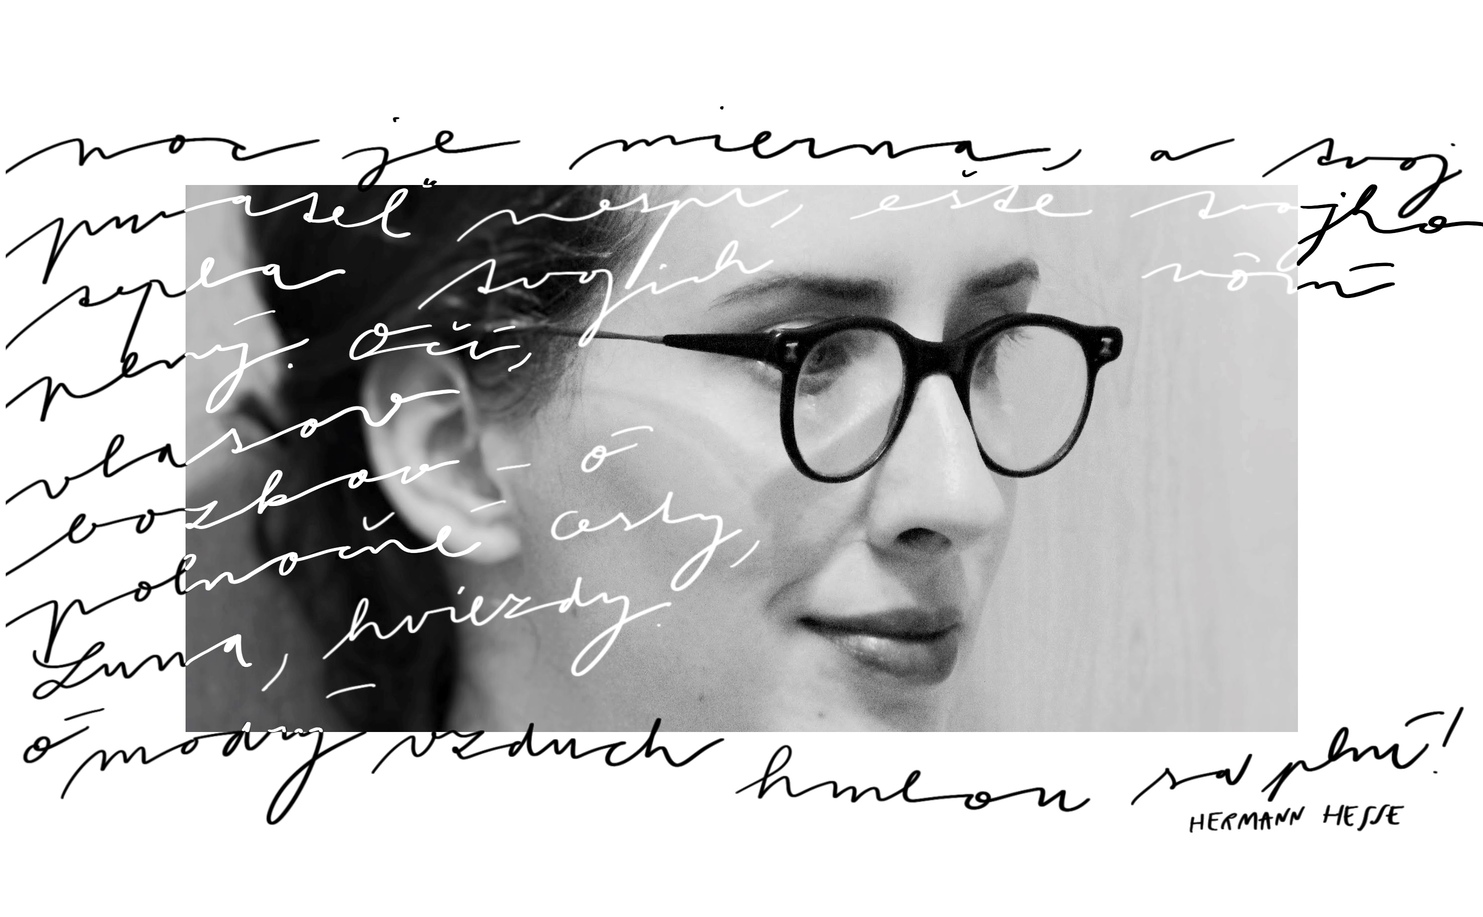 noc je mierna, a tvoj
priateľ nespí, ešte tvojho
tepla tvojich vôní
plný. Očí,
vlasov
bozkov – ó
polnočné cesty,
Luna, hviezdy.
ó modrý vzduch hmlou sa plní!
HERMANN HESSE